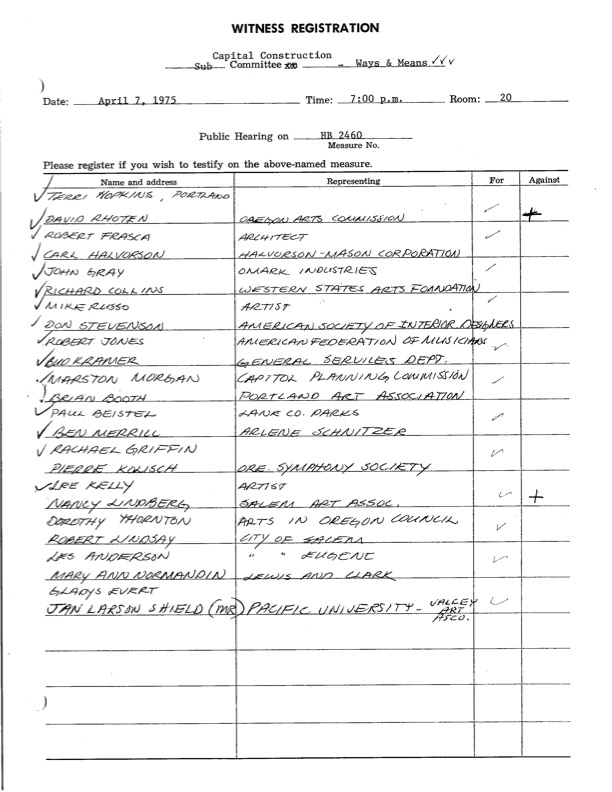 WITNESS REGISTRATION
Capital Construction
Sub Committee xxx - Ways & Means ✓✓✓
Date: April 7, 1975 Time: 7:00 p.m. Room: 20
Public Hearing on HB 2460
Measure No.
Please register if you wish to testify on the above-named measure.
Name and address Representing For Against
✓ TERRI HOPKINS, PORTLAND
✓ DAVID RHOTEN OREGON ARTS COMMISSION ✓ +
✓ ROBERT FRASCA ARCHITECT ✓
✓ CARL HALVORSON HALVORSON-MASON CORPORATION
✓ JOHN GRAY OMARK INDUSTRIES ✓
✓ RICHARD COLLINS WESTERN STATES ARTS FOUNDATION
✓ MIKE RUSSO ARTIST ✓
✓ DON STEVENSON AMERICAN SOCIETY OF INTERIOR DESIGNERS
✓ ROBERT JONES AMERICAN FEDERATION OF MUSICIANS ✓
✓ BUD KRAMER GENERAL SERVICES DEPT.
✓ MARSTON MORGAN CAPITOL PLANNING COMMISSION ✓
✓ BRIAN BOOTH PORTLAND ART ASSOCIATION
✓ PAUL BEISTEL LANE CO. PARKS ✓
✓ BEN MERRILL ARLENE SCHNITZER
✓ RACHAEL GRIFFIN ✓
PIERRE KOLISCH ORE. SYMPHONY SOCIETY
✓ LEE KELLY ARTIST
NANCY LINDBERG SALEM ART ASSOC. ✓ +
DOROTHY THORNTON ARTS IN OREGON COUNCIL ✓
ROBERT LINDSAY CITY OF SALEM
LES ANDERSON " " EUGENE ✓
MARY ANN NORMANDIN LEWIS AND CLARK
GLADYS EVERT
JAN LARSON SHIELD (MR) PACIFIC UNIVERSITY - VALLEY ✓
ART
ASCO.